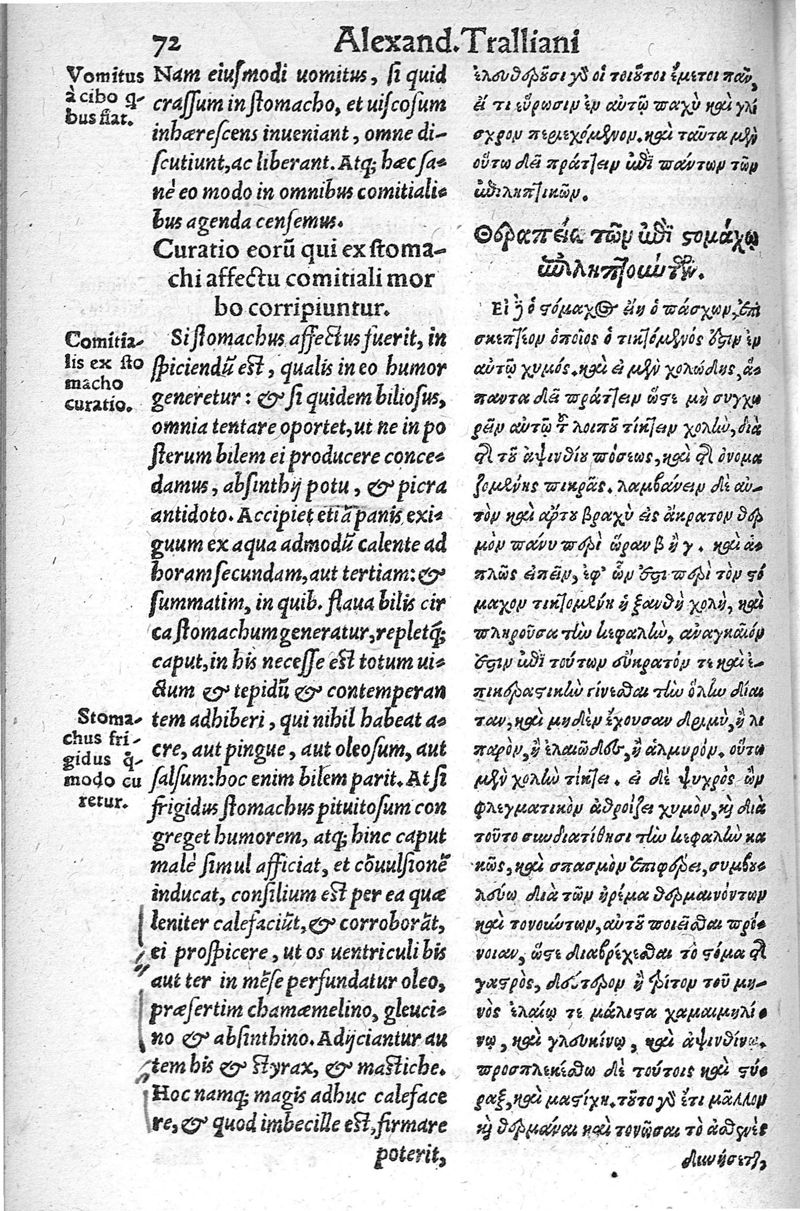 72
Alexand. Tralliani
Vomitus
à cibo q̃-
bus fiat.
Nam eiusmodi uomitus, si quid
crassum in stomacho, et uiscosum
inhærescens inueniant, omne di-
scutiunt, ac liberant. Atq; hæc sa-
nè eo modo in omnibus comitiali-
bus agenda censemus.
Curatio eorũ qui ex stoma-
chi affectu comitiali mor
bo corripiuntur.
Comitia-
lis ex sto
macho
curatio.
Si stomachus affectus fuerit, in
spiciendũ est, qualis in eo humor
generetur: & si quidem biliosus,
omnia tentare oportet, ut ne in po
sterum bilem ei producere conce-
damus, absinthij potu, & picra
antidoto. Accipiet etiã panis exi-
guum ex aqua admodũ calente ad
horam secundam, aut tertiam: &
summatim, in quib. flaua bilis cir
ca stomachum generatur, repletq́;
caput, in his necesse est totum ui-
ctum & tepidũ & contemperan
Stoma-
chus fri-
gidus q̃-
modo cu
retur.
tem adhiberi, qui nihil habeat a-
cre, aut pingue, aut oleosum, aut
salsum: hoc enim bilem parit. At si
frigidus stomachus pituitosum con
greget humorem, atq; hinc caput
malè simul afficiat, et cõuulsionẽ
inducat, consilium est per ea quæ
leniter calefaciũt, & corroborãt,
ei prospicere, ut os uentriculi bis
aut ter in mẽse perfundatur oleo,
præsertim chamæmelino, gleuci-
no & absinthino. Adijciantur au
tem his & styrax, & mastiche.
Hoc namq; magis adhuc caleface
re, & quod imbecille est, firmare
poterit,
ἐλευθεροῦσι γὰρ οἱ τοιοῦτοι ἔμετοι πᾶν,
εἴ τι εὕρωσιν ἐν αὐτῷ παχὺ καὶ γλί
σχρον περιεχόμενον. καὶ ταῦτα μὲν
οὕτω δεῖ πράττειν ἐπὶ πάντων τῶν
ἐπιληπτικῶν.
Θεραπεία τῶν ἐπὶ στομάχῳ
ἐπιληπτικῶν.
Εἰ δὲ ὁ στόμαχος εἴη ὁ πάσχων, ἐπι
σκεπτέον ὁποῖος ὁ τικτόμενός ἐστιν ἐν
αὐτῷ χυμός. καὶ εἰ μὲν χολώδης, ἅ-
παντα δεῖ πράττειν ὥστε μὴ συγχω
ρεῖν αὐτῷ τοῦ λοιποῦ τίκτειν χολὴν, διὰ
τε τοῦ ἀψινθίου πόσεως, καὶ τῆς ὀνομα
ζομένης πικρᾶς. λαμβάνειν δὲ αὐ-
τὸν καὶ ἄρτου βραχὺ εἰς ἄκρατον θερ
μὸν πάνυ περὶ ὥραν β ἢ γ. καὶ ἁ-
πλῶς εἰπεῖν, ἐφ' ὧν ἐστι περὶ τὸν στό
μαχον τικτομένη ἡ ξανθὴ χολὴ, καὶ
πληροῦσα τὴν κεφαλὴν, ἀναγκαῖόν
ἐστιν ἐπὶ τούτων εὔκρατόν τε καὶ ἐ-
πικεραστικὴν γίνεσθαι τὴν ὅλην δίαι
ταν, καὶ μηδὲν ἔχουσαν δριμὺ, ἢ λι
παρὸν, ἢ ἐλαιῶδες, ἢ ἁλμυρόν. οὕτω
μὲν χολὴν τίκτει. εἰ δὲ ψυχρὸς ὢν
φλεγματικὸν ἀθροίζει χυμὸν, καὶ διὰ
τοῦτο συνδιατίθησι τὴν κεφαλὴν κα
κῶς, καὶ σπασμὸν ἐπιφέρει, συμβου-
λεύω διὰ τῶν ἠρέμα θερμαινόντων
καὶ τονούντων, αὐτοῦ ποιεῖσθαι πρό-
νοιαν, ὥστε διαβρέχεσθαι τὸ στόμα τῆς
γαστρὸς, δεύτερον ἢ τρίτον τοῦ μη-
νὸς ἐλαίῳ τε μάλιστα χαμαιμηλί-
νῳ, καὶ γλευκίνῳ, καὶ ἀψινθίνῳ.
προσπλεκέσθω δὲ τούτοις καὶ στύ-
ραξ, καὶ μαστίχη. τοῦτο γὰρ ἔτι μᾶλλον
καὶ θερμᾶναι καὶ τονῶσαι τὸ ἀσθενὲς
δυνήσεται,